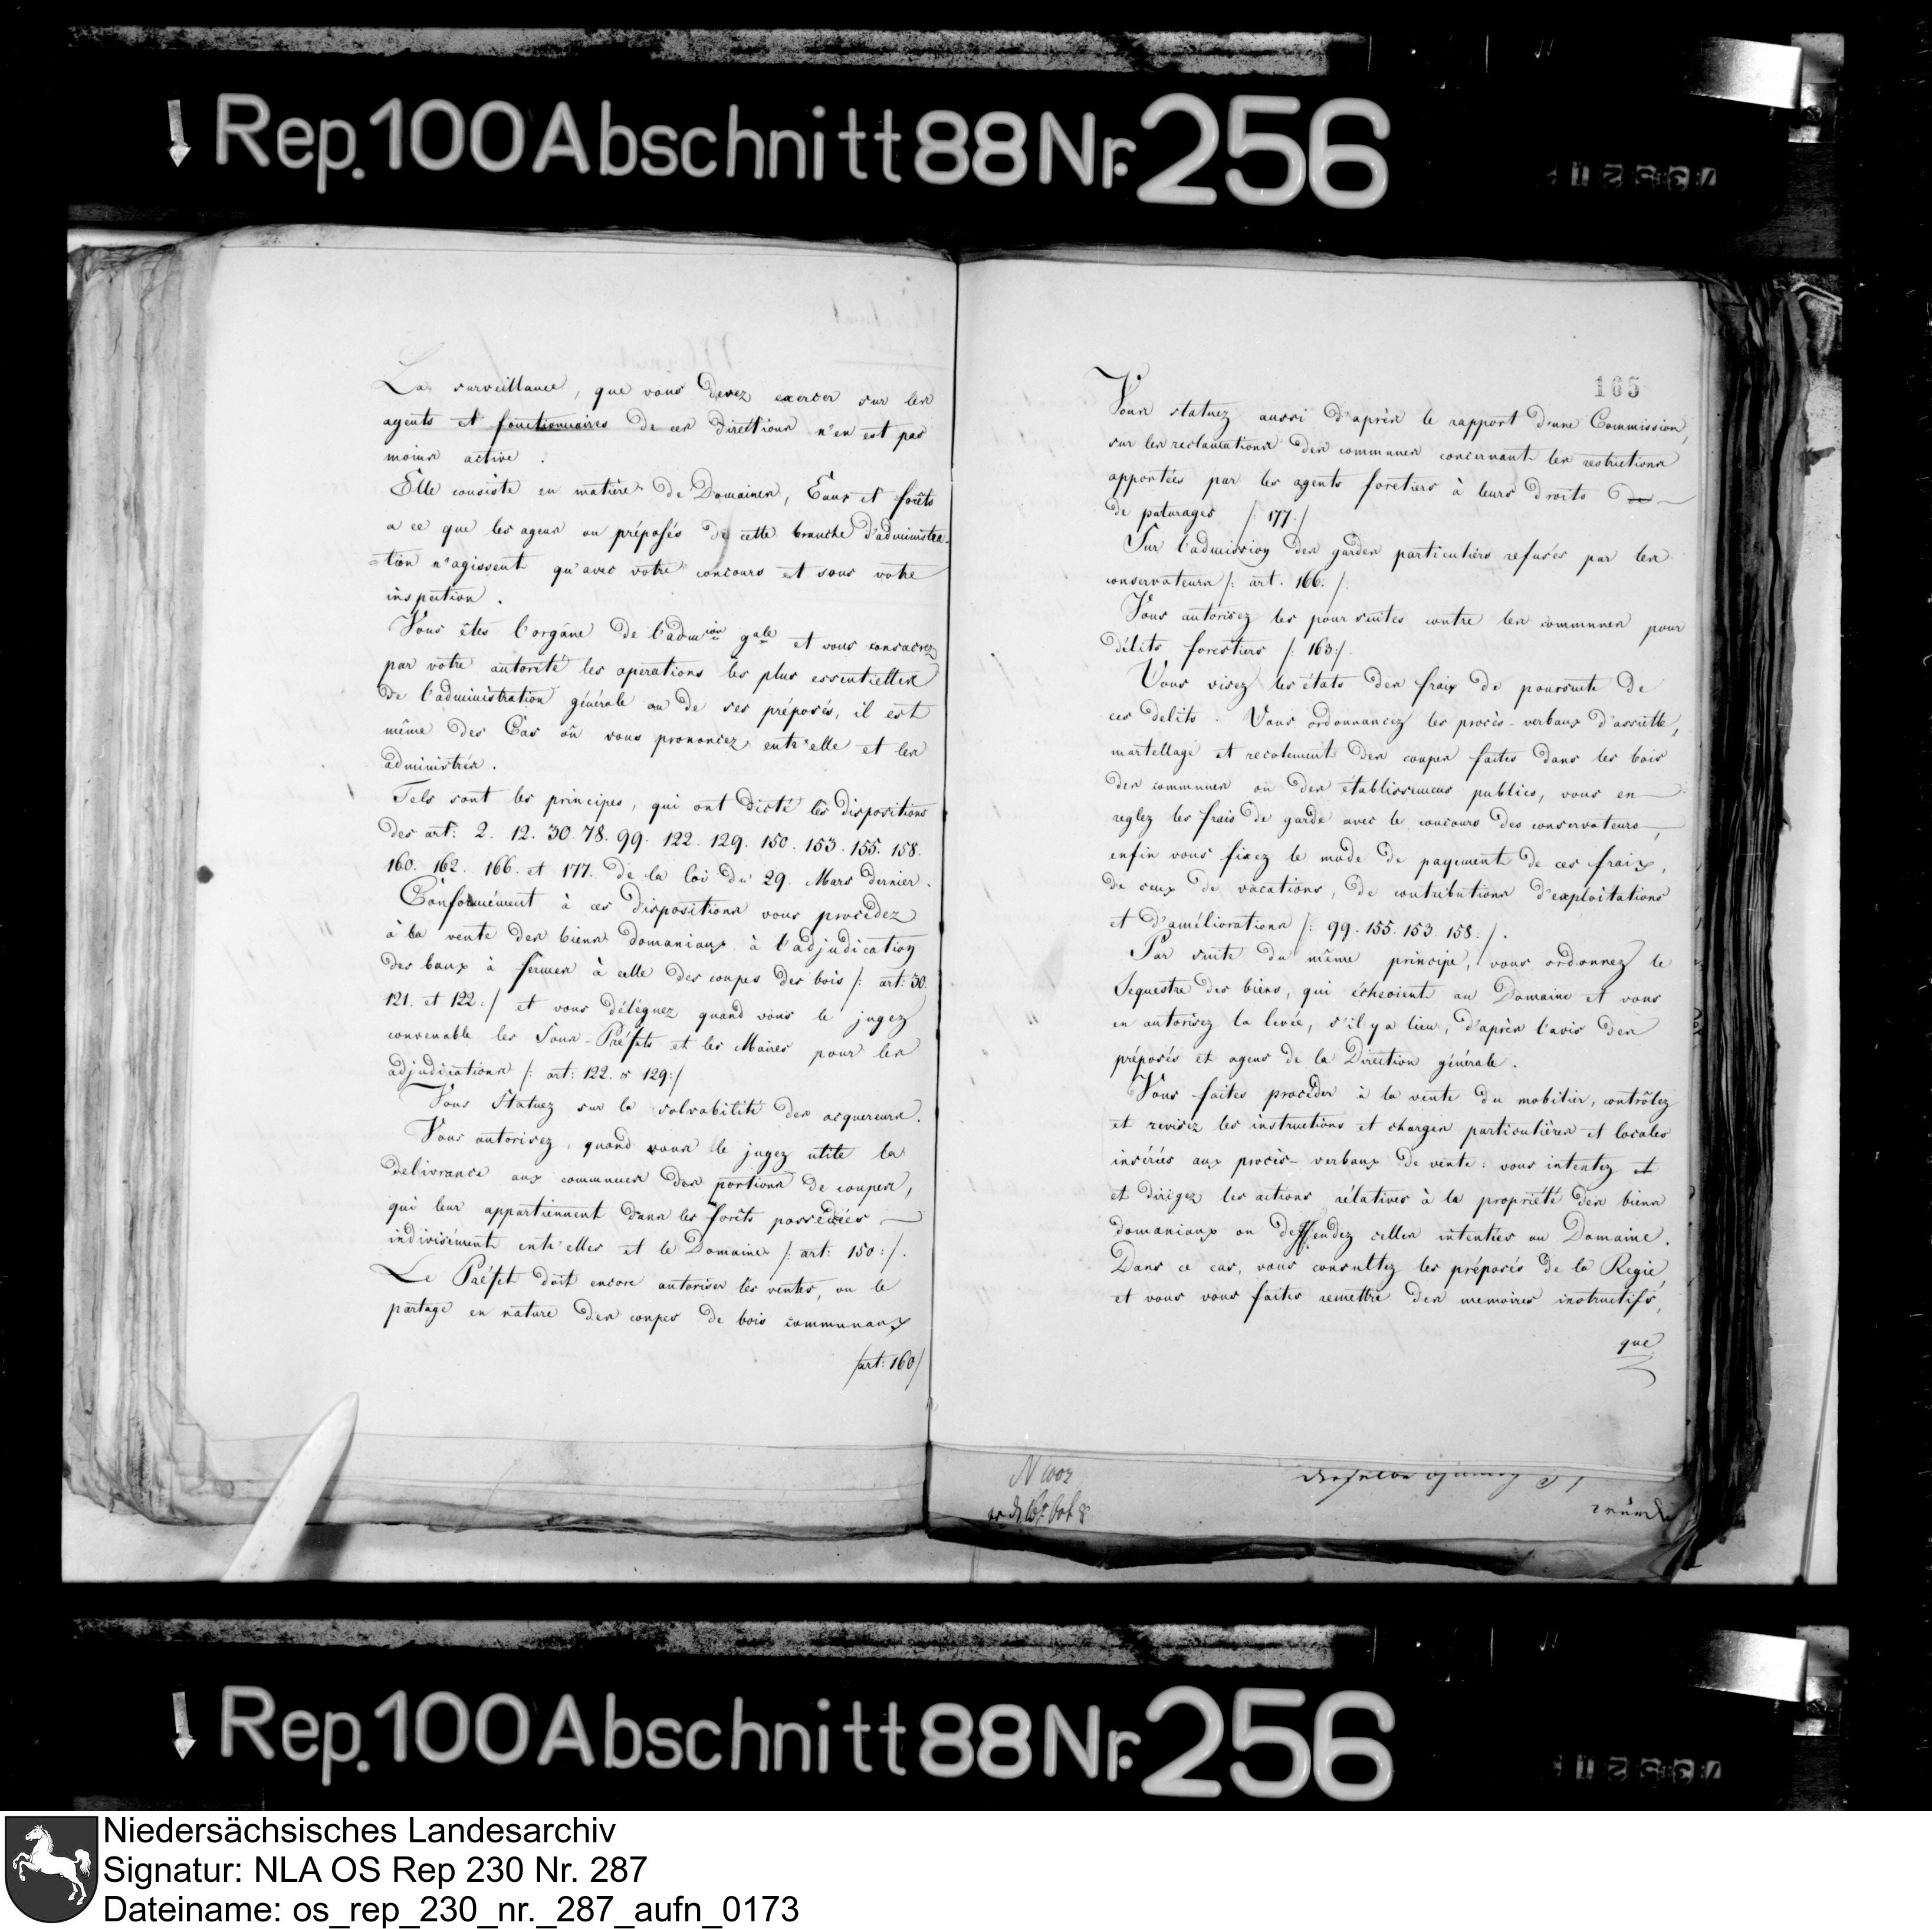 Rep. 100 Abschnitt 88 Nr. 256
La surveillance, que vous devez exercer sur les
agents et fonctionnaires de ces directions n'en est pas
moins active.
Elle consiste en matière de Domaines, Eaux et forêts
a ce que les agens ou préposés de cette branche d'administra-
=tion n'agissent qu'avec votre concours et sous votre
inspection.
Vous êtes l'orgâne de l'adm.ion gale et vous consacrez
par votre autorité les operations les plus essentielles
de l'administration générale ou de ses préposés, il est
même des Cas où vous prononcez entr'elle et les
administrés.
Tels sont les principes, qui ont dicté les dispositions
des art: 2. 12. 30. 78. 99. 122. 129. 150. 153. 155. 158.
160. 162. 166. et 177. de la loi du 29. Mars dernier.
Conformément à ces dispositions vous procédez
à la vente des biens domaniaux à l'adjudication
des baux à fermes à celle des coupes des bois /: art: 30.
121. et 122:/ et vous déléguez quand vous le jugez
convenable les Sous-Préfets et les Maires pour les
adjudications /: art: 122. & 129:/
Vous Statuez sur la solvabilité des acquereurs.
Vous autorisez, quand vous le jugez utile la
delivrance aux communes des portions de coupes,
qui leur appartiennent dans les forêts possédées
indivisément entr'elles et le Domaine /: art: 150:/.
Le Préfet doit encore autoriser les ventes, ou le
partage en nature des coupes de bois communaux
/art: 160/
165
Vous statuez aussi d'après le rapport d'une Commission,
sur les reclamations des communes concernant les restrictions
apportées par les agents foretiers à leurs droits de
de paturages /: 177:/
Sur l'admission des gardes particuliers refusés par les
conservateurs /: art. 166. /.
Vous autorisez les poursuites contre les communes pour
délits forestiers /: 163:/.
Vous visez les états des fraix de poursuite de
ces delits. Vous ordonnancez les procès-verbaux d'assiette,
martellage et recolement des coupes faites dans les bois
des communes ou des établissemens publics, vous en
reglez les frais de garde avec le concours des conservateurs,
enfin vous fixez le mode de payement de ces fraix,
de ceux de vacations, de contributions d'exploitations
et d'améliorations /: 99. 155. 153. 158:/.
Par suite du même principe, vous ordonnez le
Sequestre des biens, qui écheoient au Domaine et vous
en autorisez la levée, s'il y a lieu, d'après l'avis des
préposés et agens de la Direction générale.
Vous faites procéder à la vente du mobilier, contrôlez
et revisez les instructions et charges particulières et locales
insérées aux procès-verbaux de vente: vous intentez et
et dirigez les actions rélatives à la propriété des biens
domaniaux ou deffendez celles intentées au Domaine.
Dans ce cas, vous consultez les préposés de la Regie,
et vous vous faites remettre des memoires instructifs,
que
Rep. 100 Abschnitt 88 Nr. 256
Niedersächsisches Landesarchiv
Signatur: NLA OS Rep 230 Nr. 287
Dateiname: os_rep_230_nr._287_aufn_0173